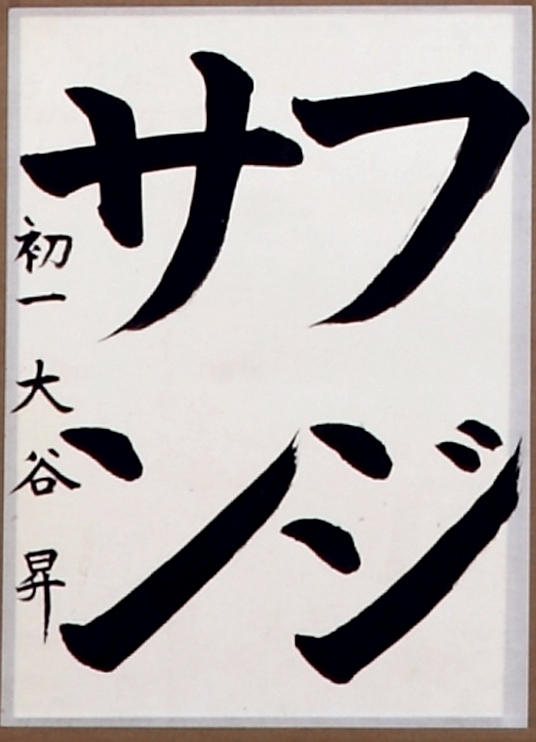 フジ
サン
初一 大谷 昇